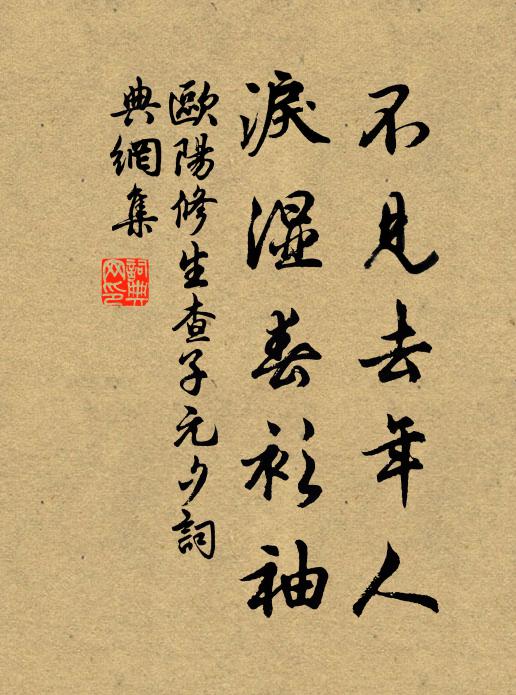 不見去年人
淚湿春衫袖
歐陽修生查子元夕詞
典網集
詞典
网印